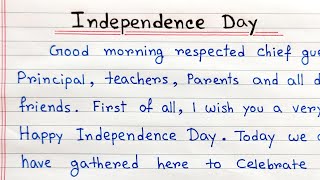 Independence Day
Good morning respected chief
Principal, teachers, Parents and all
friends. First of all, I wish you a very
Happy Independence Day. Today we
have gathered here to celebrate